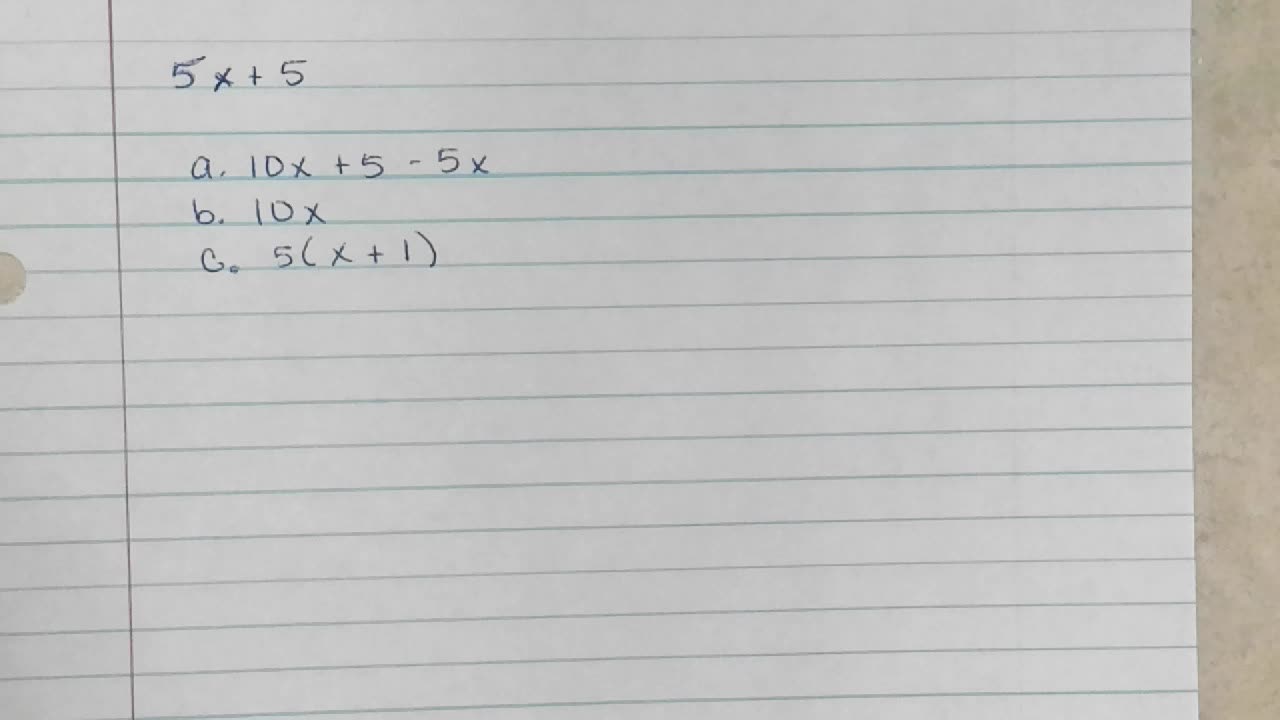 5x + 5
a. 10x + 5 - 5x
b. 10x
c. 5(x + 1)